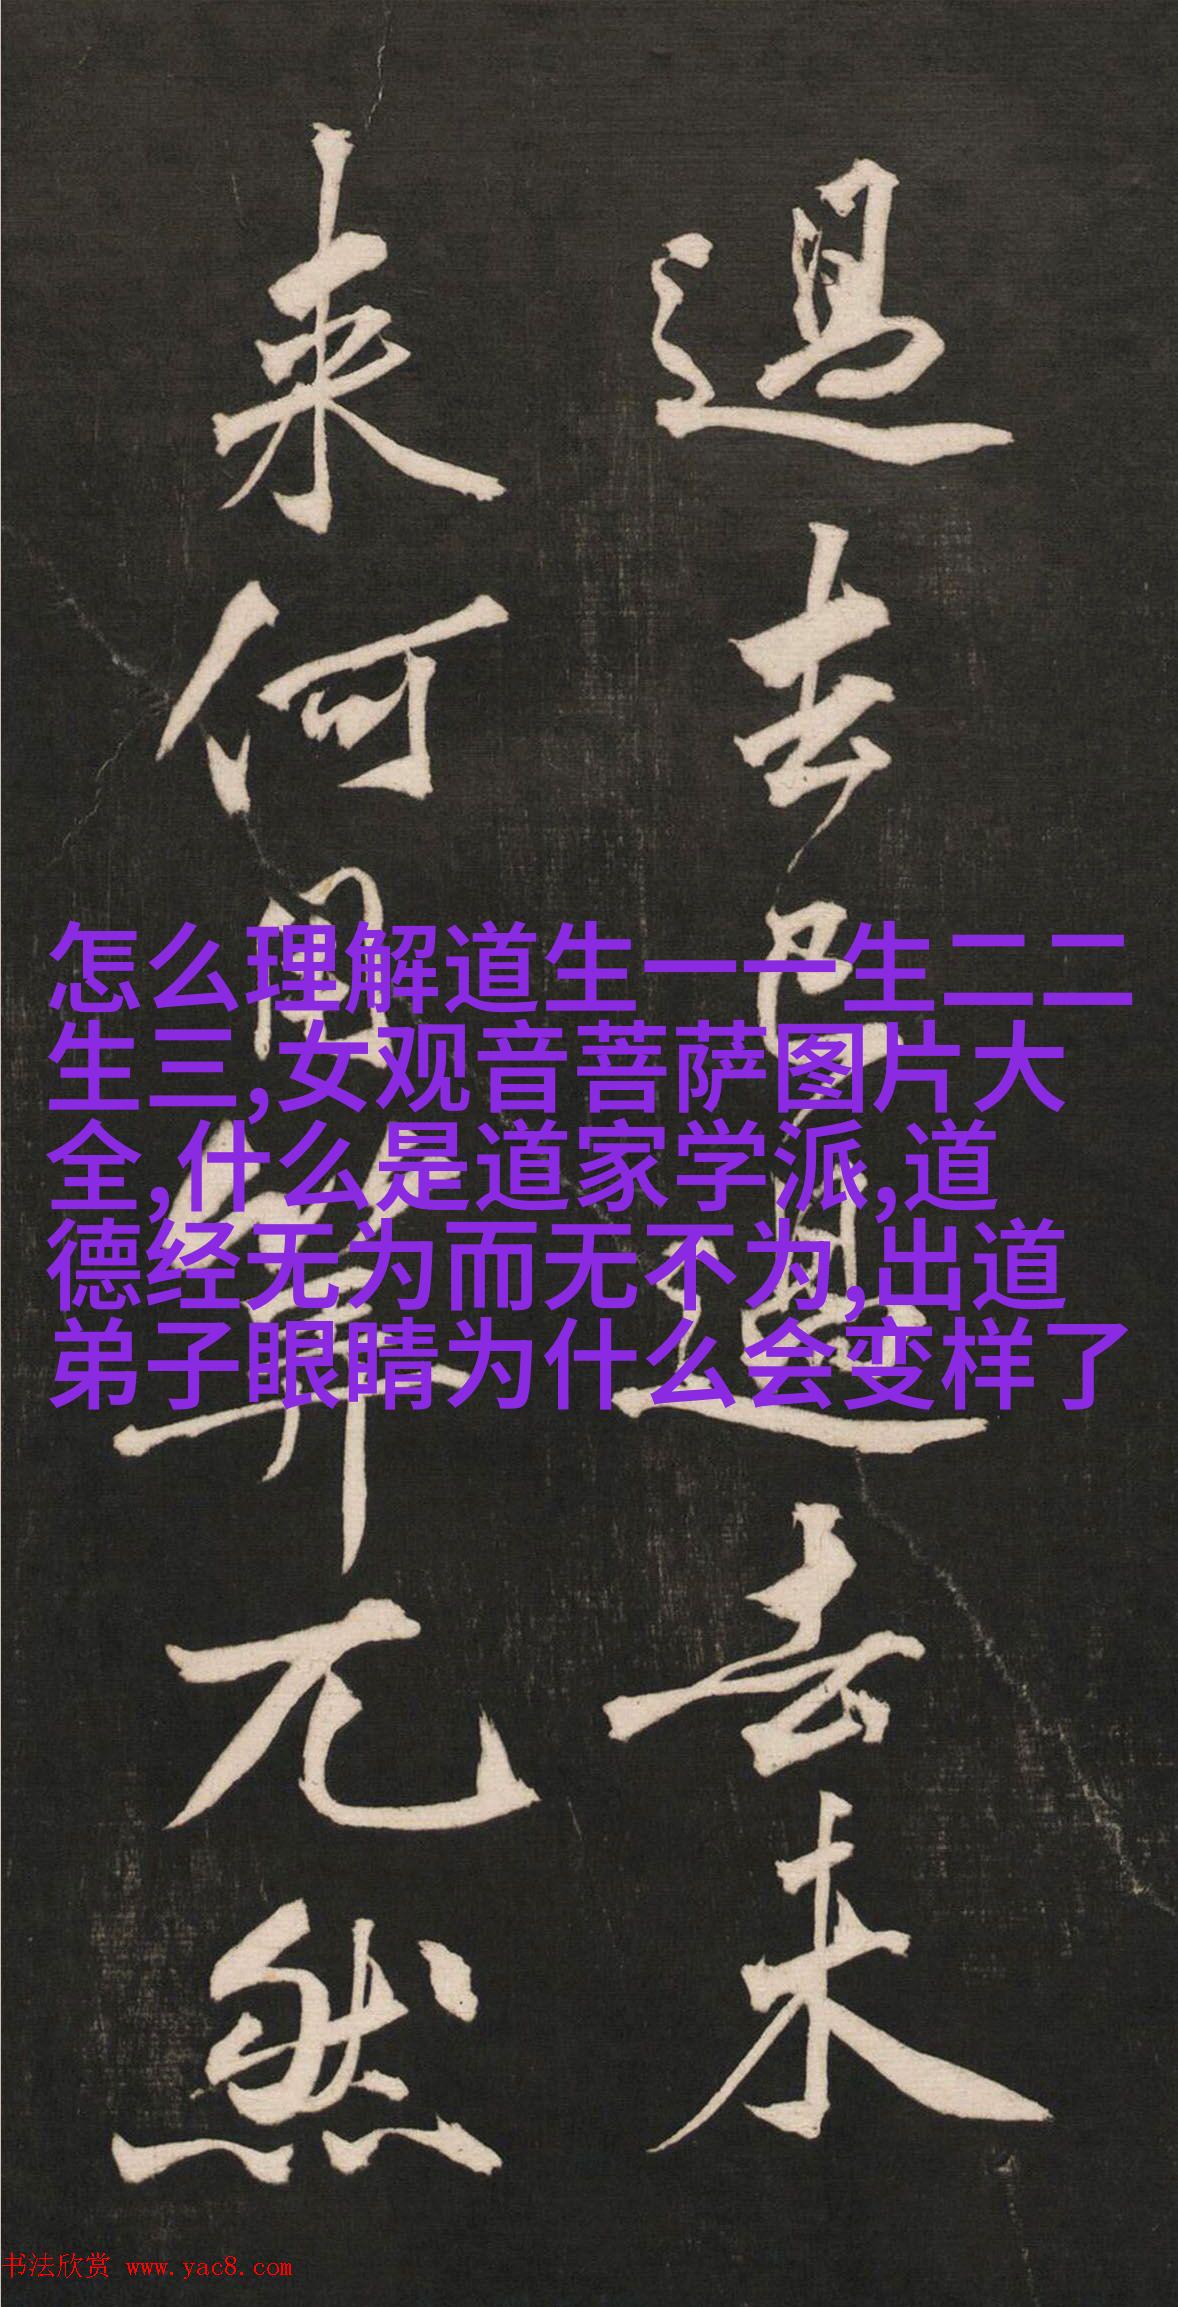 過去已過去未
来何用算兀然
怎么理解道生一一生二二
生三,女观音菩萨图片大
全,什么是道家学派,道
德经无为而无不为,出道
弟子眼睛为什么会变样了
书法欣赏 www.yac8.com